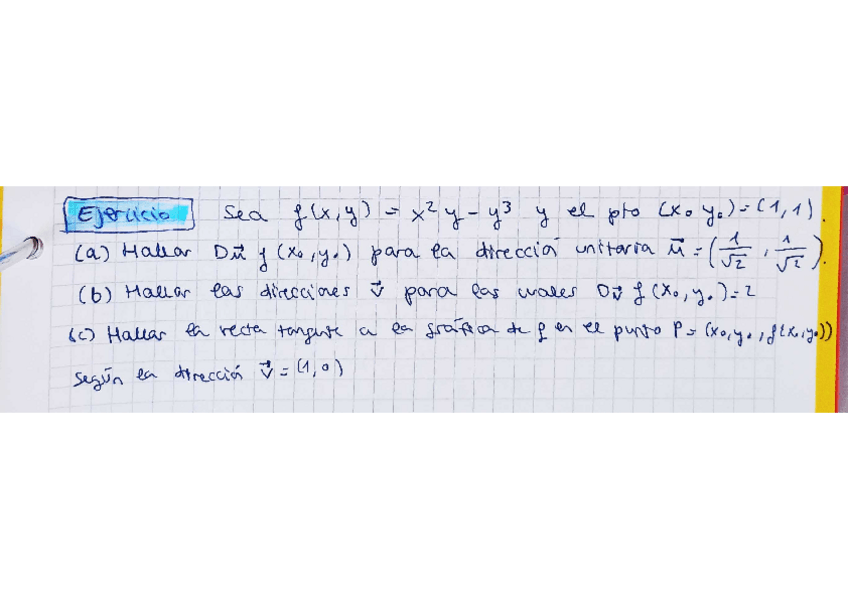 Ejercicio Sea f(x,y) = x² y - y³ y el pto (x₀ y₀) = (1,1).
(a) Hallar Dū f (x₀,y₀) para la dirección unitaria ū = (1/√2, 1/√2).
(b) Hallar las direcciones v⃗ para las cuales Dv⃗ f(x₀,y₀)=2
(c) Hallar la recta tangente a la gráfica de f en el punto P = (x₀,y₀,f(x₀,y₀))
según la dirección v⃗ = (1,0)